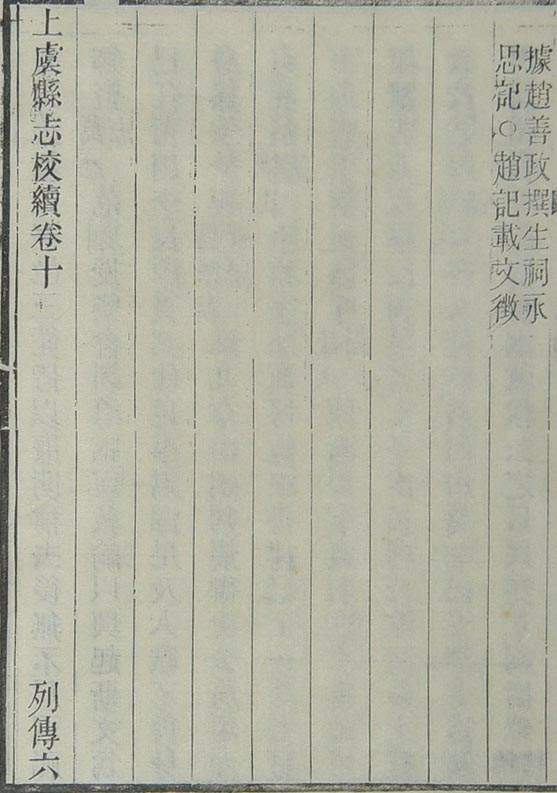 據趙善政撰生祠永
思記○趙記載文徵
上虞縣志校續卷十
列傳六